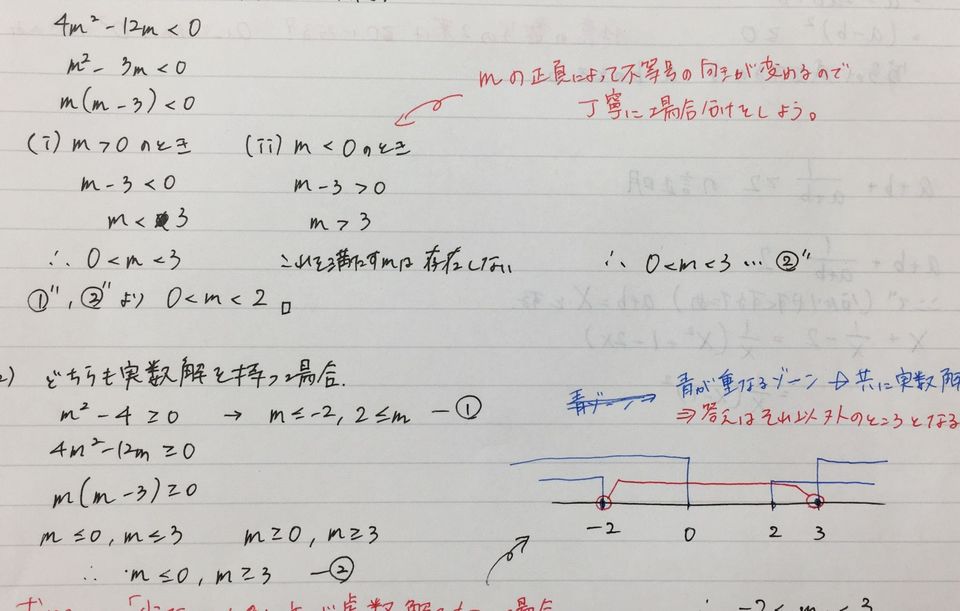 4m²-12m<0
m²-3m<0
m(m-3)<0
mの正負によって不等号の向きが変わるので
丁寧に場合分けをしよう。
(i) m>0のとき
m-3<0
m<3
∴ 0<m<3
(ii) m<0のとき
m-3>0
m>3
これを満たすmは存在しない
∴ 0<m<3 … ②"
①", ②"より 0<m<2
2) どちらも実数解を持つ場合.
m²-4≥0 → m≤-2, 2≤m ―①
4m²-12m≥0
m(m-3)≥0
m≤0, m≤3 m≥0, m≥3
∴ m≤0, m≥3 ―②
青が重なるゾーン → 共に実数解
⇒答えはそれ以外のところとなる
-2 0 2 3
∴ -2<m<3